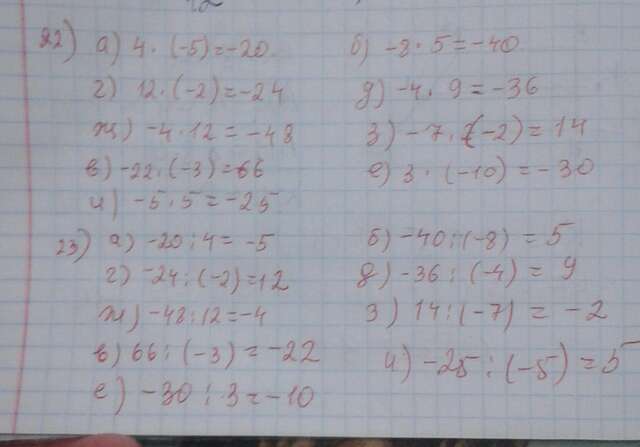 12
22) а) 4 · (-5) = -20 б) -8 · 5 = -40
г) 12 · (-2) = -24 д) -4 · 9 = -36
ж) -4 · 12 = -48 з) -7 · (-2) = 14
в) -22 · (-3) = 66 е) 3 · (-10) = -30
и) -5 · 5 = -25
23) а) -20 : 4 = -5 б) -40 : (-8) = 5
г) -24 : (-2) = 12 д) -36 : (-4) = 9
ж) -48 : 12 = -4 з) 14 : (-7) = -2
в) 66 : (-3) = -22 и) -25 : (-5) = 5
е) -30 : 3 = -10